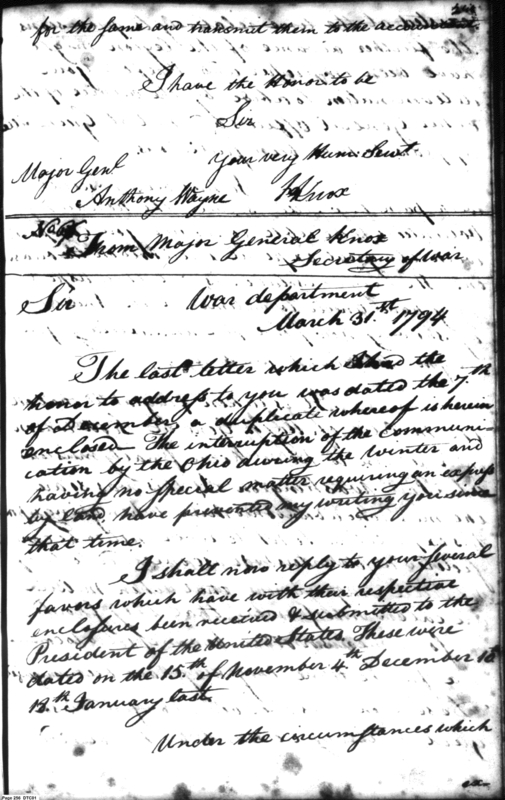 for the same and transmit them to the accountant.
I have the Honor to be
Sir
Your very Hum: Servt.
Major Genl
Anthony Wayne
HKnox
From Major General Knox
Secretary of War
Sir
War department
March 31st 1794
The last letter which I had the
honor to address to you was dated the 7th
of December, a duplicate whereof is herein
enclosed. The interruption of the communi-
cation by the Ohio during the winter and
having no special matter requiring an express
by land have prevented my writing you since
that time.
I shall now reply to your several
favors which have with their respective
enclosures been received & submitted to the
President of the United States These were
dated on the 15th of November 4th December
January last
Under the circumstances which
Page 256 DTC01